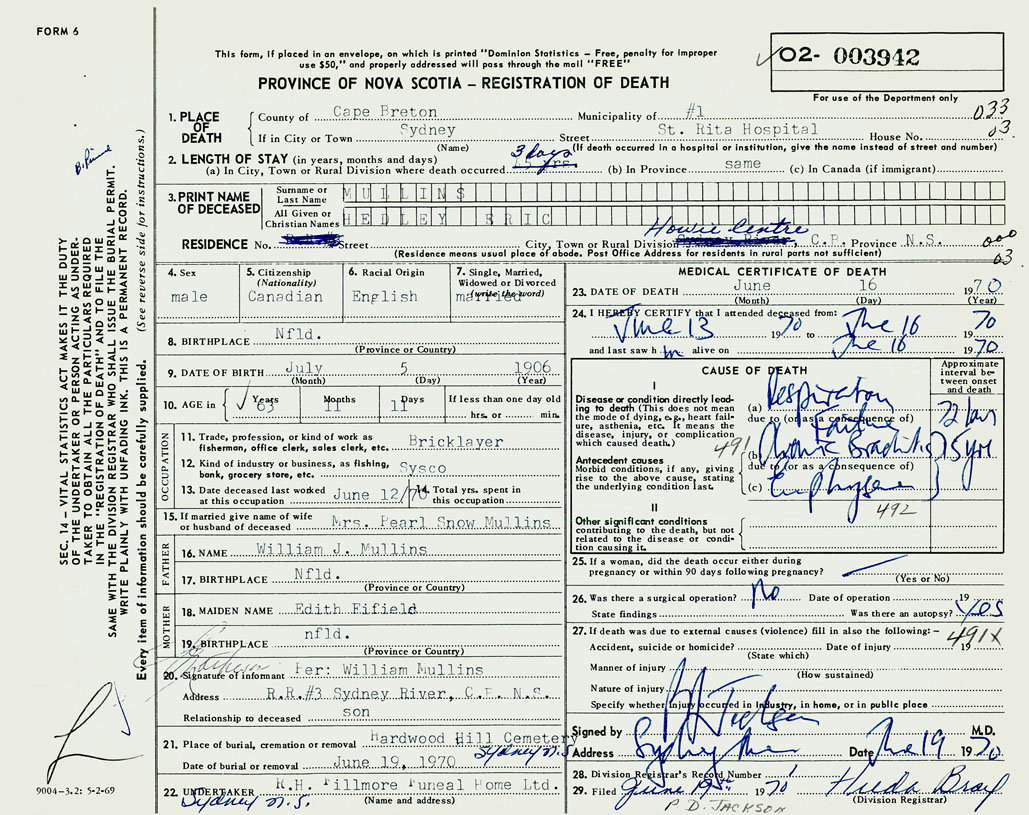 FORM 6
This form, if placed in an envelope, on which is printed "Dominion Statistics – Free, penalty for improper
use $50," and properly addressed will pass through the mail "FREE"
PROVINCE OF NOVA SCOTIA – REGISTRATION OF DEATH
02- 003942
For use of the Department only
SEC. 14 – VITAL STATISTICS ACT MAKES IT THE DUTY
OF THE UNDERTAKER OR PERSON ACTING AS UNDER-
TAKER TO OBTAIN ALL THE PARTICULARS REQUIRED
IN THE "REGISTRATION OF DEATH" AND TO FILE THE
SAME WITH THE DIVISION REGISTRAR WHO SHALL ISSUE THE BURIAL PERMIT.
WRITE PLAINLY WITH UNFADING INK. THIS IS A PERMANENT RECORD.
Every item of information should be carefully supplied. (See reverse side for instructions.)
1. PLACE OF DEATH
County of Cape Breton Municipality of #1 033
If in City or Town Sydney Street St. Rita Hospital House No. 03
(Name) (If death occurred in a hospital or institution, give the name instead of street and number)
2. LENGTH OF STAY (in years, months and days)
(a) In City, Town or Rural Division where death occurred 3 days (b) In Province same (c) In Canada (if immigrant)
3. PRINT NAME OF DECEASED
Surname or Last Name MULLINS
All Given or Christian Names HEDLEY ERIC
RESIDENCE No. Street City, Town or Rural Division Howie Centre C.B. Province N.S. 000
(Residence means usual place of abode. Post Office Address for residents in rural parts not sufficient) 03
4. Sex male
5. Citizenship (Nationality) Canadian
6. Racial Origin English
7. Single, Married, Widowed or Divorced (write the word) married
8. BIRTHPLACE Nfld.
(Province or Country)
9. DATE OF BIRTH July 5 1906
(Month) (Day) (Year)
10. AGE in Years 63 Months 11 Days 11 If less than one day old
hrs. or min.
OCCUPATION
11. Trade, profession, or kind of work as fisherman, office clerk, sales clerk, etc. Bricklayer
12. Kind of industry or business, as fishing, bank, grocery store, etc. Sysco
13. Date deceased last worked at this occupation June 12/70 14. Total yrs. spent in this occupation
15. If married give name of wife or husband of deceased Mrs. Pearl Snow Mullins
FATHER
16. NAME William J. Mullins
17. BIRTHPLACE Nfld.
(Province or Country)
MOTHER
18. MAIDEN NAME Edith Fifield
19. BIRTHPLACE nfld.
(Province or Country)
20. Signature of informant Per: William Mullins
Address R.R.#3 Sydney River, C.B. N.S.
Relationship to deceased son
21. Place of burial, cremation or removal Hardwood Hill Cemetery
Sydney N.S
Date of burial or removal June 19, 1970
22. UNDERTAKER R.H. Fillmore Funeral Home Ltd.
Sydney N.S. (Name and address)
9004-3.2: 5-2-69
MEDICAL CERTIFICATE OF DEATH
23. DATE OF DEATH June 16 1970
(Month) (Day) (Year)
24. I HEREBY CERTIFY that I attended deceased from:
June 13 1970 to June 16 1970
and last saw h im alive on June 16 1970
CAUSE OF DEATH
Approximate interval between onset and death
I
Disease or condition directly leading to death (This does not mean the mode of dying, e.g., heart failure, asthenia, etc. It means the disease, injury, or complication which caused death.)
(a) Respiratory Failure 72 hours
due to (or as a consequence of)
491
Antecedent causes
Morbid conditions, if any, giving rise to the above cause, stating the underlying condition last.
(b) Chronic Bronchitis 15 yrs
due to (or as a consequence of)
(c) Emphysema
492
II
Other significant conditions
contributing to the death, but not related to the disease or condition causing it.
25. If a woman, did the death occur either during
pregnancy or within 90 days following pregnancy?
(Yes or No)
26. Was there a surgical operation? No Date of operation 19
State findings Was there an autopsy? Yes
27. If death was due to external causes (violence) fill in also the following:– 491X
Accident, suicide or homicide? Date of injury 19
(State which)
Manner of injury
(How sustained)
Nature of injury
Specify whether injury occurred in industry, in home, or in public place
Signed by M.D.
Address Sydney Date June 19 1970
28. Division Registrar's Record Number
29. Filed June 19th 1970 Hilda Bray
(Division Registrar)
P.D. JACKSON